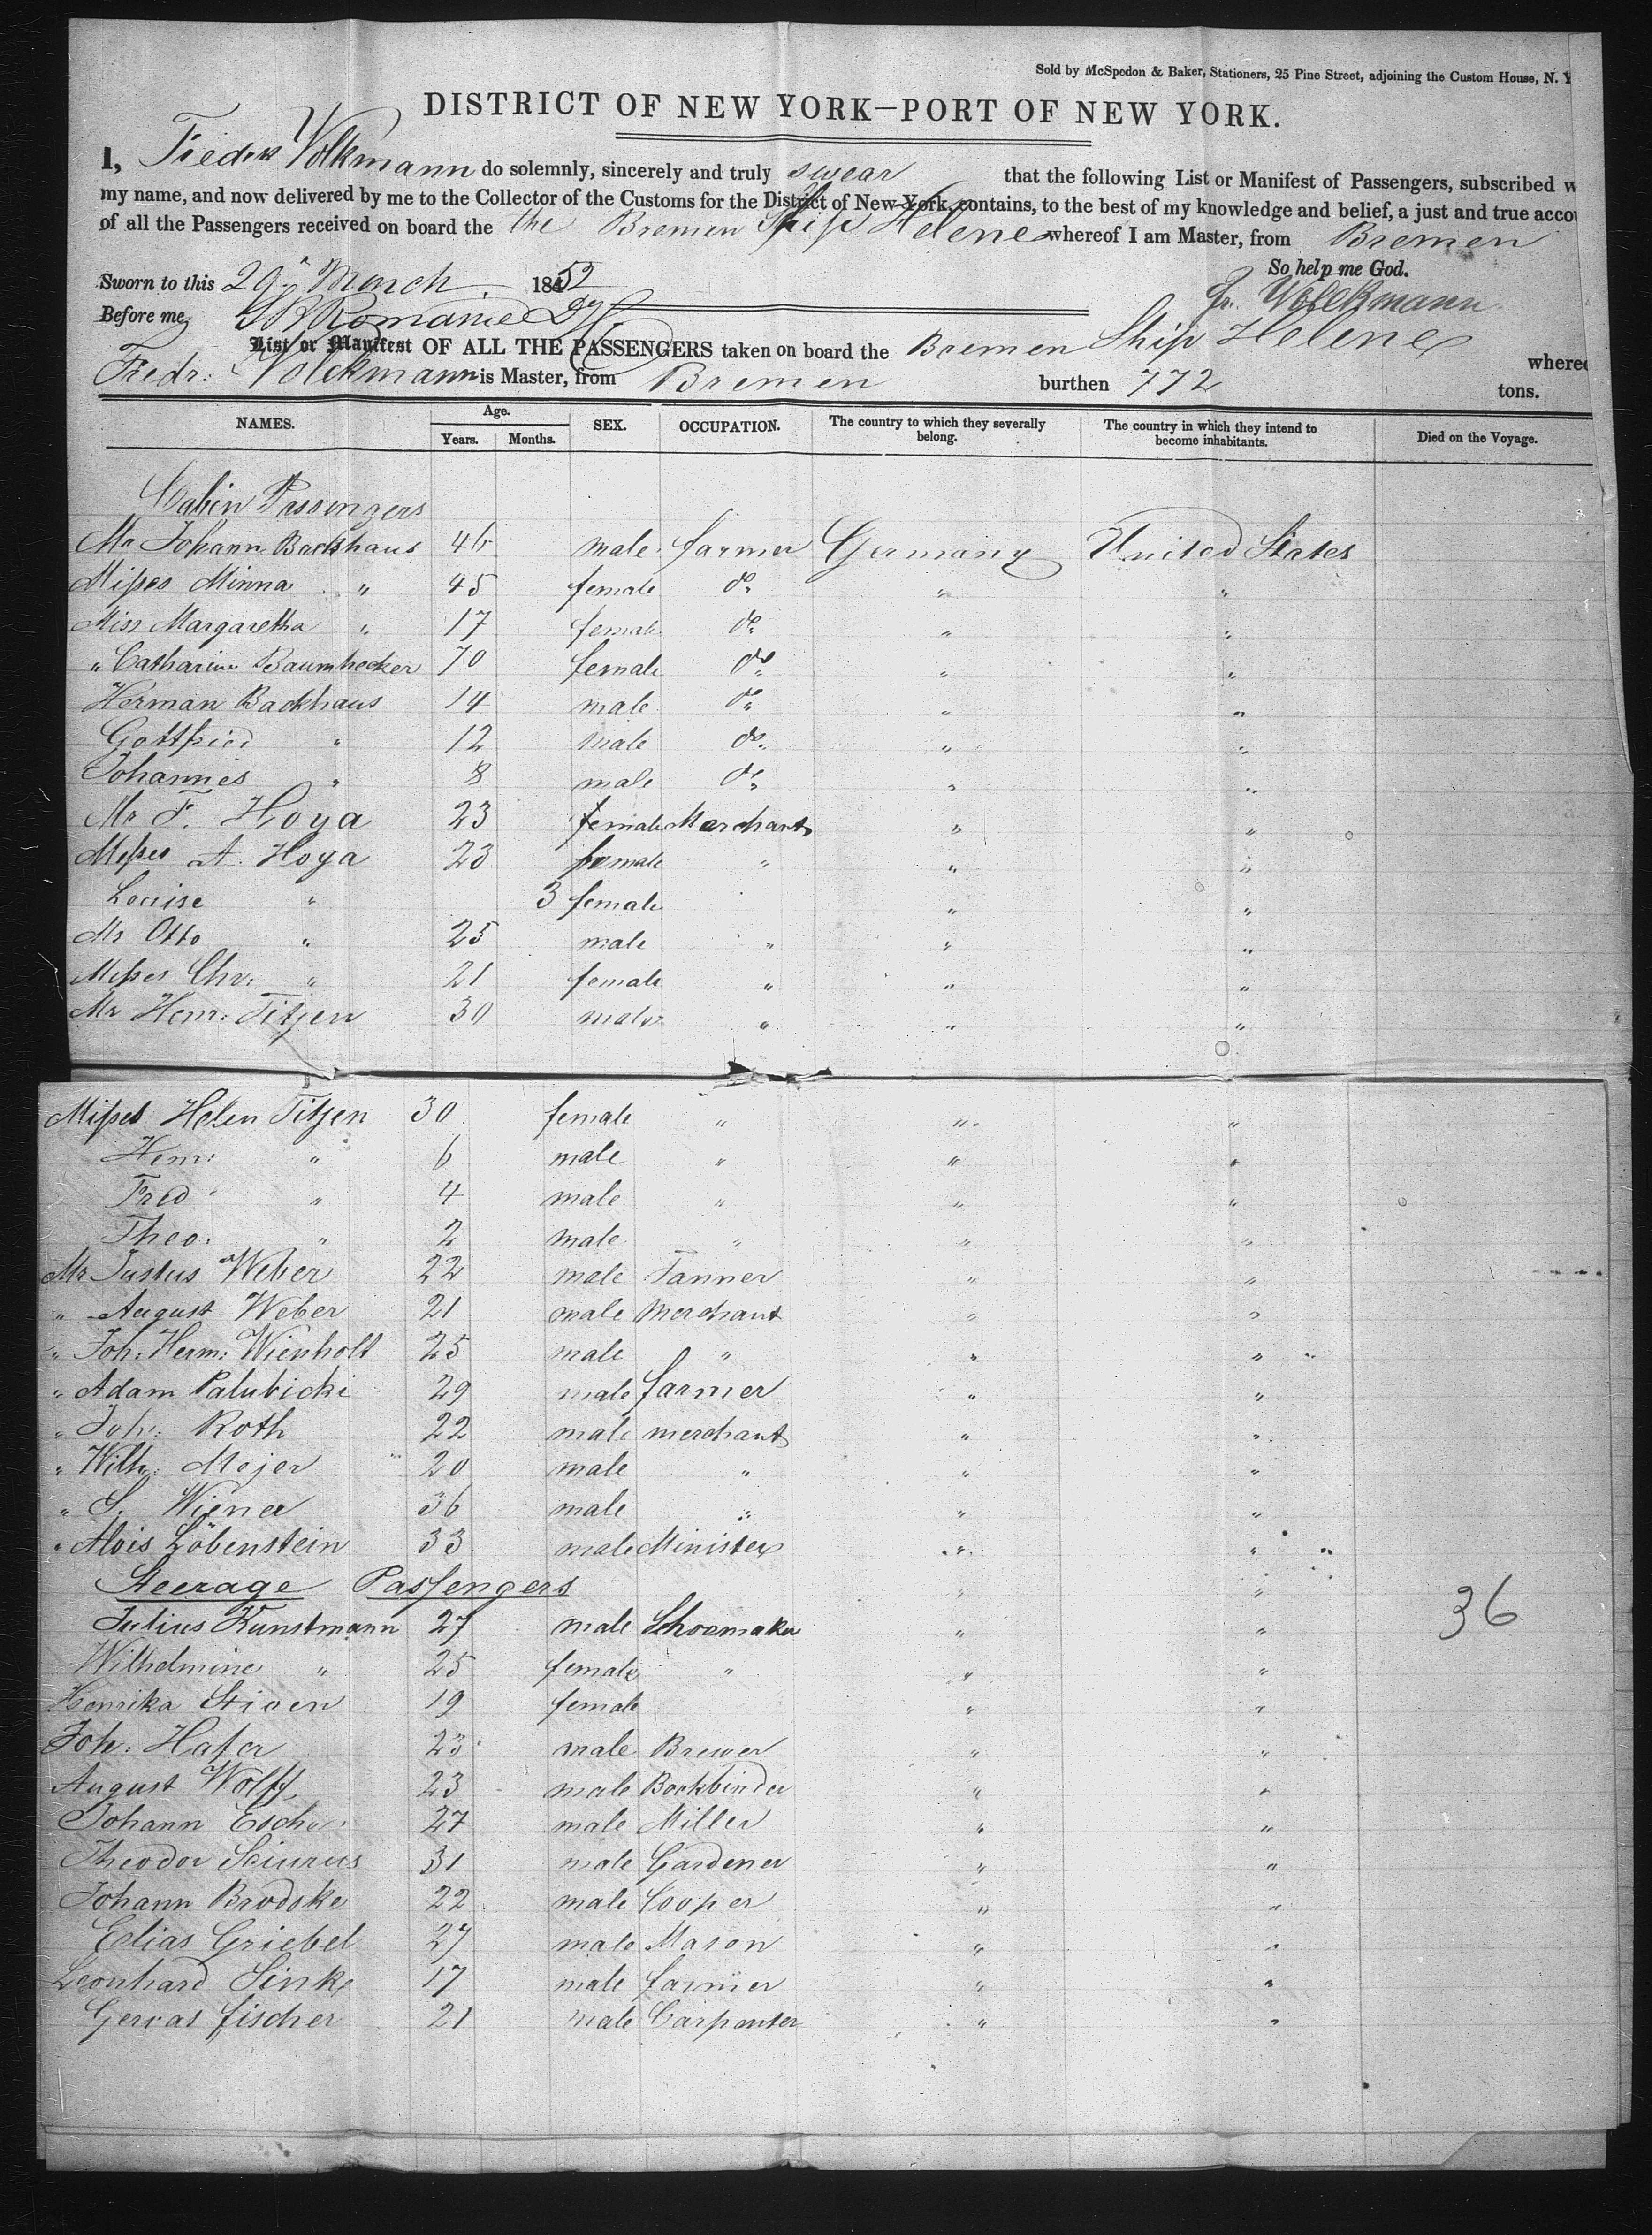 Sold by McSpedon & Baker, Stationers, 25 Pine Street, adjoining the Custom House, N. Y
DISTRICT OF NEW YORK—PORT OF NEW YORK.
I, Fiedrk Volkmann do solemnly, sincerely and truly swear that the following List or Manifest of Passengers, subscribed w
my name, and now delivered by me to the Collector of the Customs for the District of New-York, contains, to the best of my knowledge and belief, a just and true accou
of all the Passengers received on board the the Bremen Ship Helene whereof I am Master, from Bremen
So help me God.
Sworn to this 29th March 1852
Fr. Wolckmann
Before me,
List or Manifest OF ALL THE PASSENGERS taken on board the Bremen Ship Helene
where
Fredr: Volckmann is Master, from Bremen burthen 772 tons.
NAMES. Age. Years. Months. SEX. OCCUPATION. The country to which they severally belong. The country in which they intend to become inhabitants. Died on the Voyage.
Cabin Passengers
Mr Johann Backhaus 46 male farmer Germany United States
Misses Minna " 45 female do " "
Miss Margaretha " 17 female do " "
" Catharine Baumhecker 70 female do " "
Herman Backhaus 14 male do " "
Gottfried " 12 male do " "
Johannes " 8 male do " "
Mr F. Hoya 23 female Merchant " "
Misses A. Hoya 23 female " " "
Louise " 3 female " "
Mr Otto " 25 male " " "
Misses Chr: " 21 female " " "
Mr Henr: Titjen 30 male " " "
Misses Helen Titjen 30 female " " "
Henr: " 6 male " " "
Fred " 4 male " " "
Theo. " 2 male " " "
Mr Justus Weber 22 male Tanner " "
" August Weber 21 male Merchant " "
" Joh: Herm: Wienholt 25 male " " "
" Adam Palubicki 29 male farmer " "
" Joh: Roth 22 male merchant " "
" Wilh: Mejer 20 male " " "
" S. Wiener 36 male " " "
" Alois Löbenstein 33 male Minister " "
Steerage Passengers " "
36
Julius Kunstmann 27 male Schoemaker " "
Wilhelmine " 25 female " " "
Henrika Stioen 19 female " "
Joh: Hafer 23 male Brewer " "
August Wolff 23 male Bookbinder " "
Johann 27 male Miller " "
Theodor Sciurus 31 male Gardener " "
Johann Brodske 22 male Cooper " "
Elias Griebel 27 male Mason " "
Leonhard Sinke 17 male farmer " "
Gervas fischer 21 male Carpenter " "